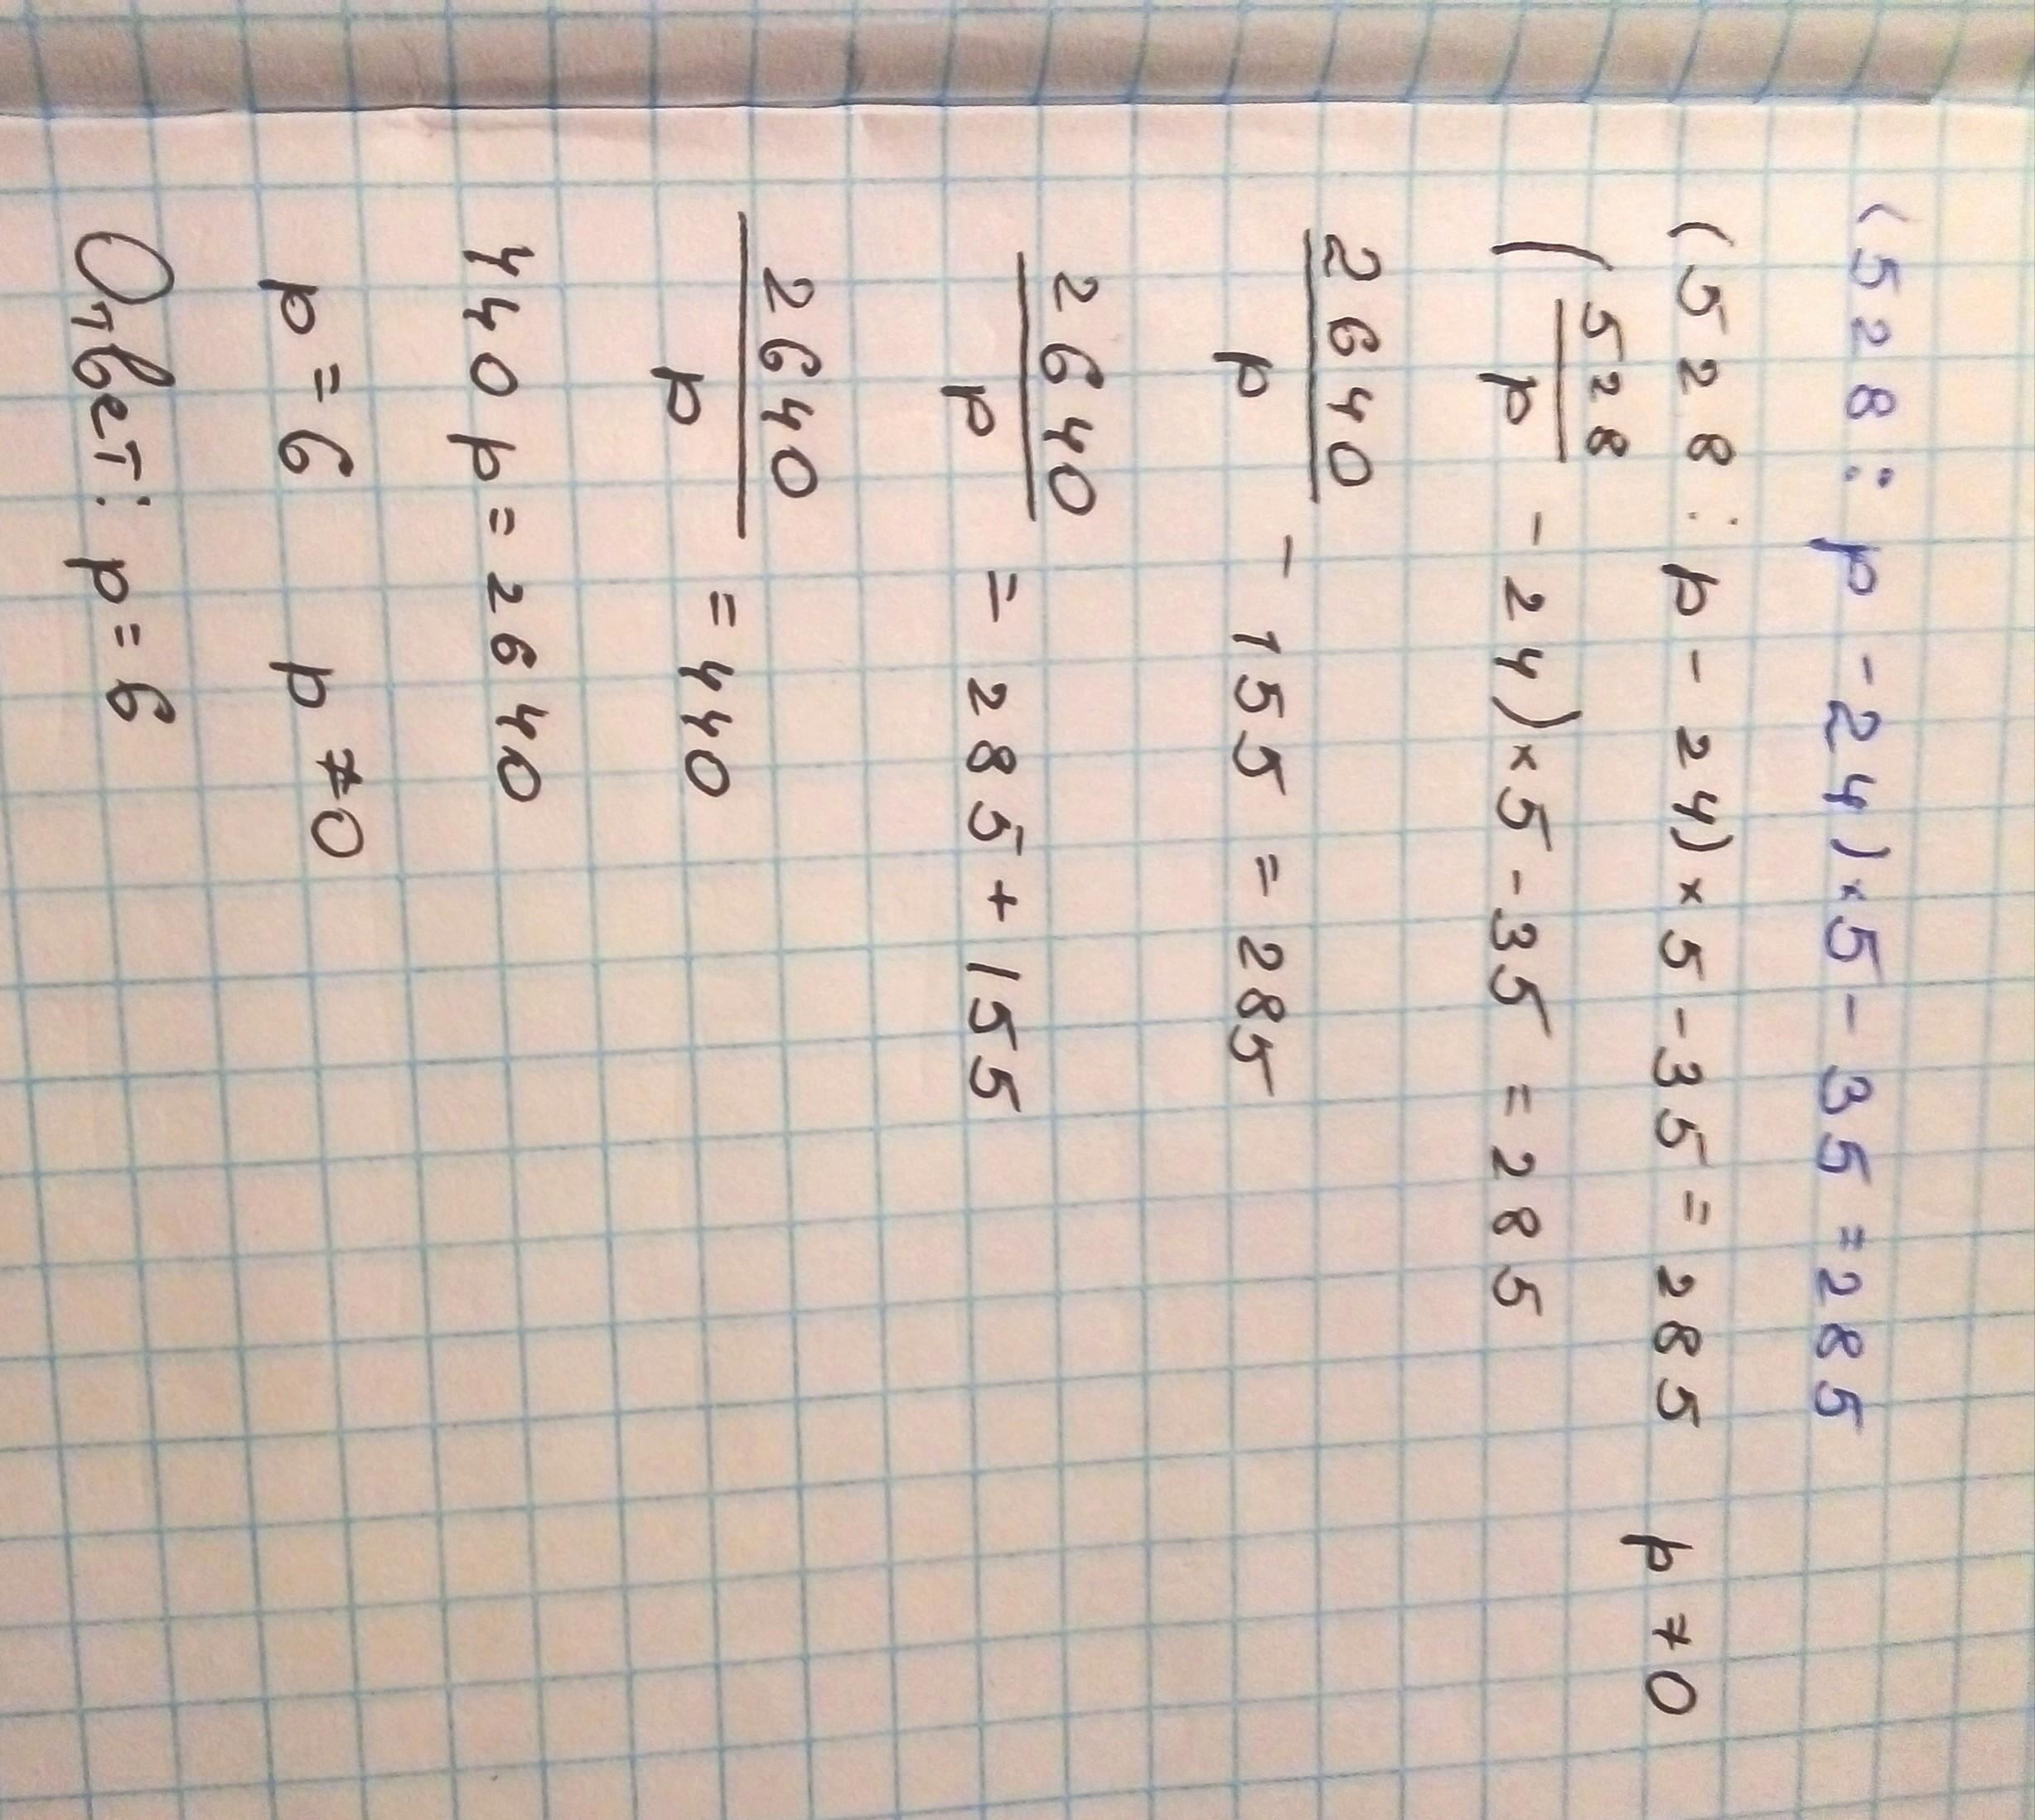 (528 : p - 24) × 5 - 35 = 285
(528 : p - 24) × 5 - 35 = 285 p ≠ 0
(528/p - 24) × 5 - 35 = 285
2640/p - 155 = 285
2640/p = 285 + 155
2640/p = 440
440p = 2640
p = 6 p ≠ 0
Ответ: p = 6